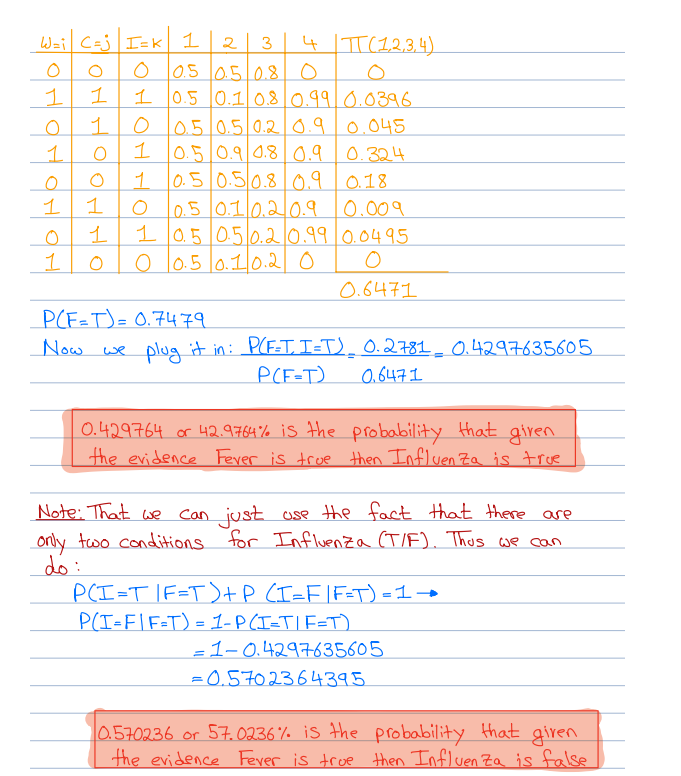 W=i C=j I=k 1 2 3 4 π(1,2,3,4)
0 0 0 0.5 0.5 0.8 0 0
1 1 1 0.5 0.1 0.8 0.99 0.0396
0 1 0 0.5 0.5 0.2 0.9 0.045
1 0 1 0.5 0.9 0.8 0.9 0.324
0 0 1 0.5 0.5 0.8 0.9 0.18
1 1 0 0.5 0.1 0.2 0.9 0.009
0 1 1 0.5 0.5 0.2 0.99 0.0495
1 0 0 0.5 0.1 0.2 0 0
0.6471
P(F=T)= 0.7479
Now we plug it in: P(F=T, I=T) = 0.2781 = 0.4297635605
P(F=T) 0.6471
0.429764 or 42.9764% is the probability that given
the evidence Fever is true then Influenza is true
Note: That we can just use the fact that there are
only two conditions for Influenza (T/F). Thus we can
do:
P(I=T|F=T)+P(I=F|F=T)=1→
P(I=F|F=T)=1-P(I=T|F=T)
=1-0.4297635605
=0.5702364395
0.570236 or 57.0236% is the probability that given
the evidence Fever is true then Influenza is false